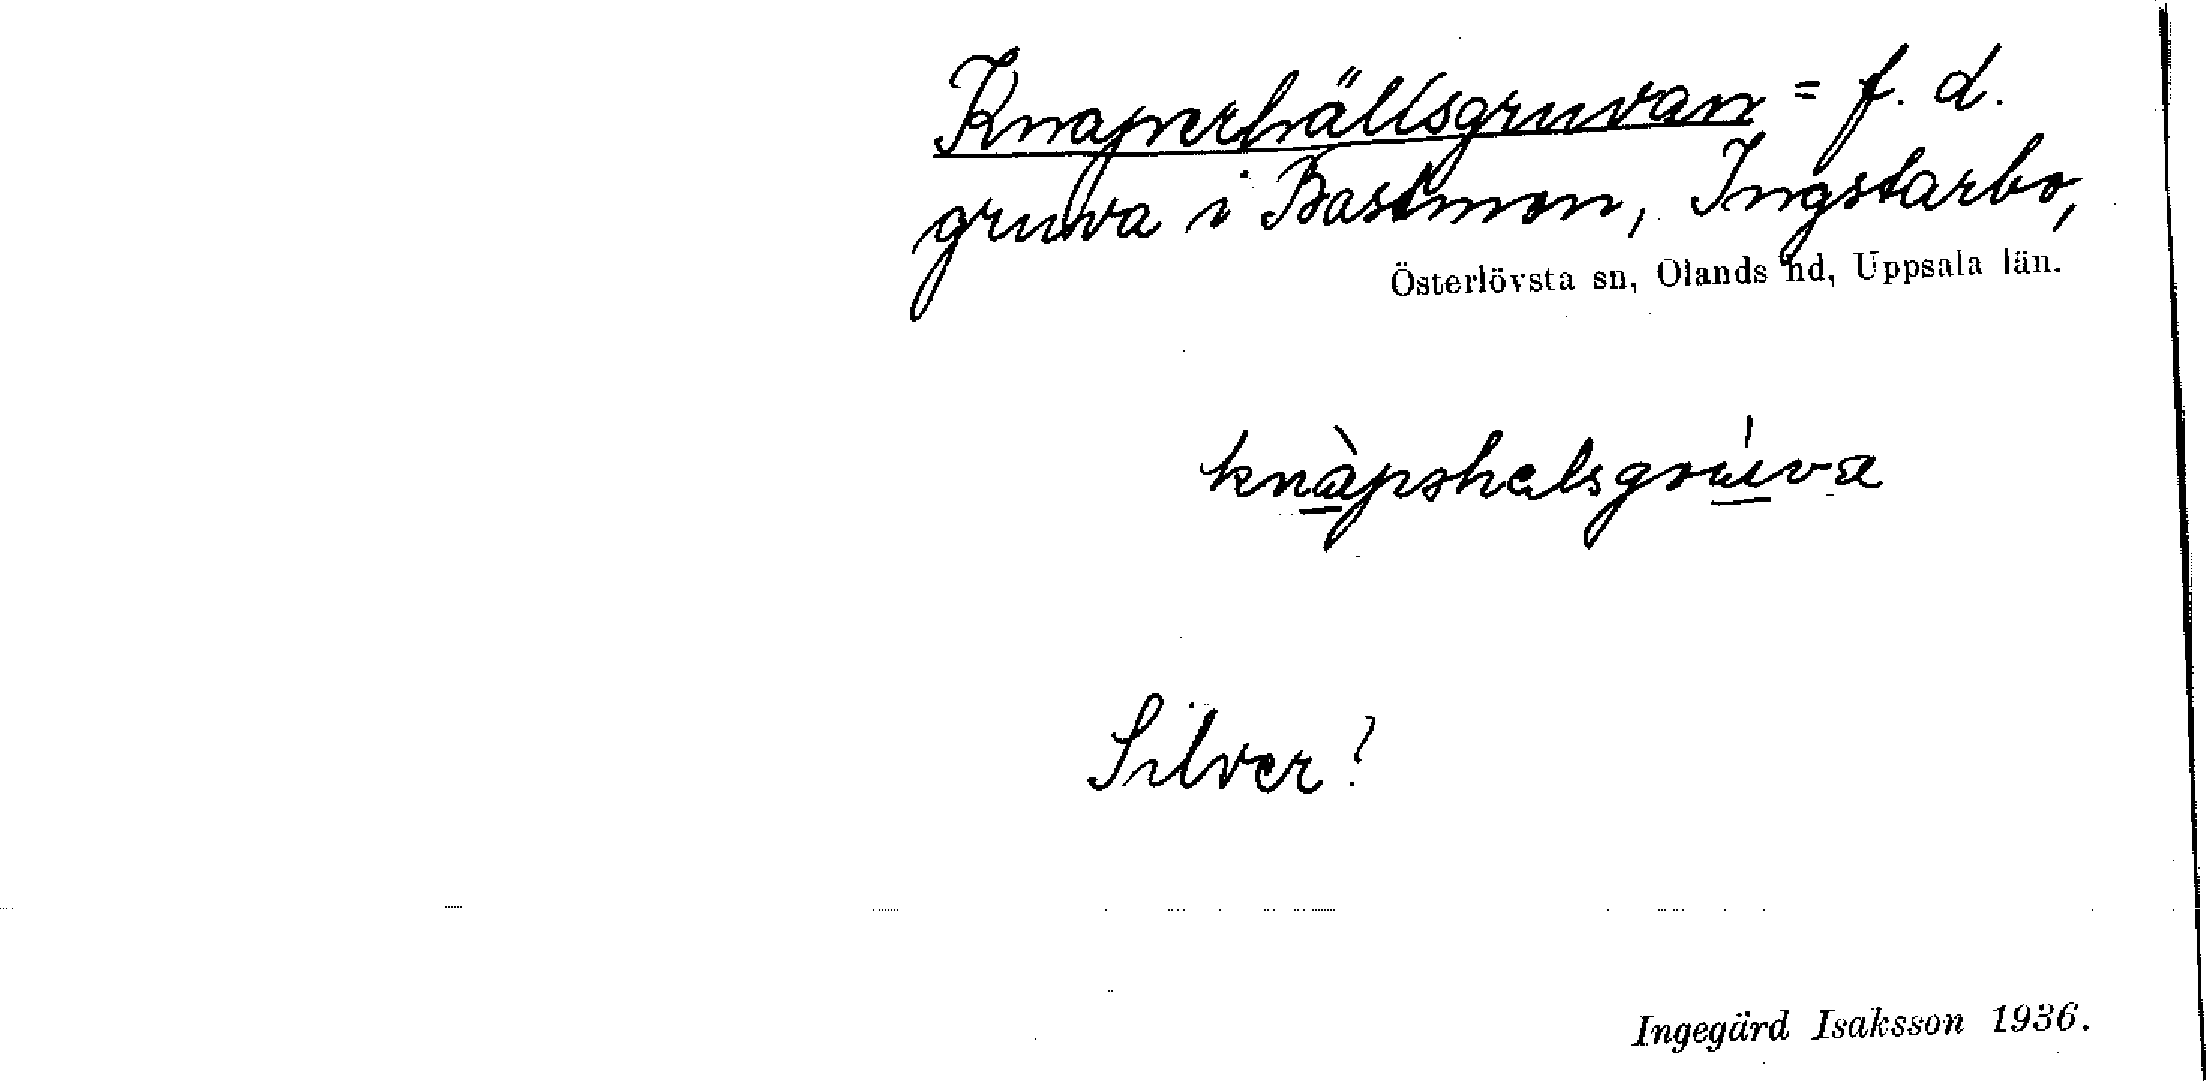 Knaperhällsgruvan = f. d.
gruva i Bastmon, Ingstarbo,
Österlövsta sn, Olands hd, Uppsala län.
knàpshalsgrúva
Silver?
Ingegärd Isaksson 1936.